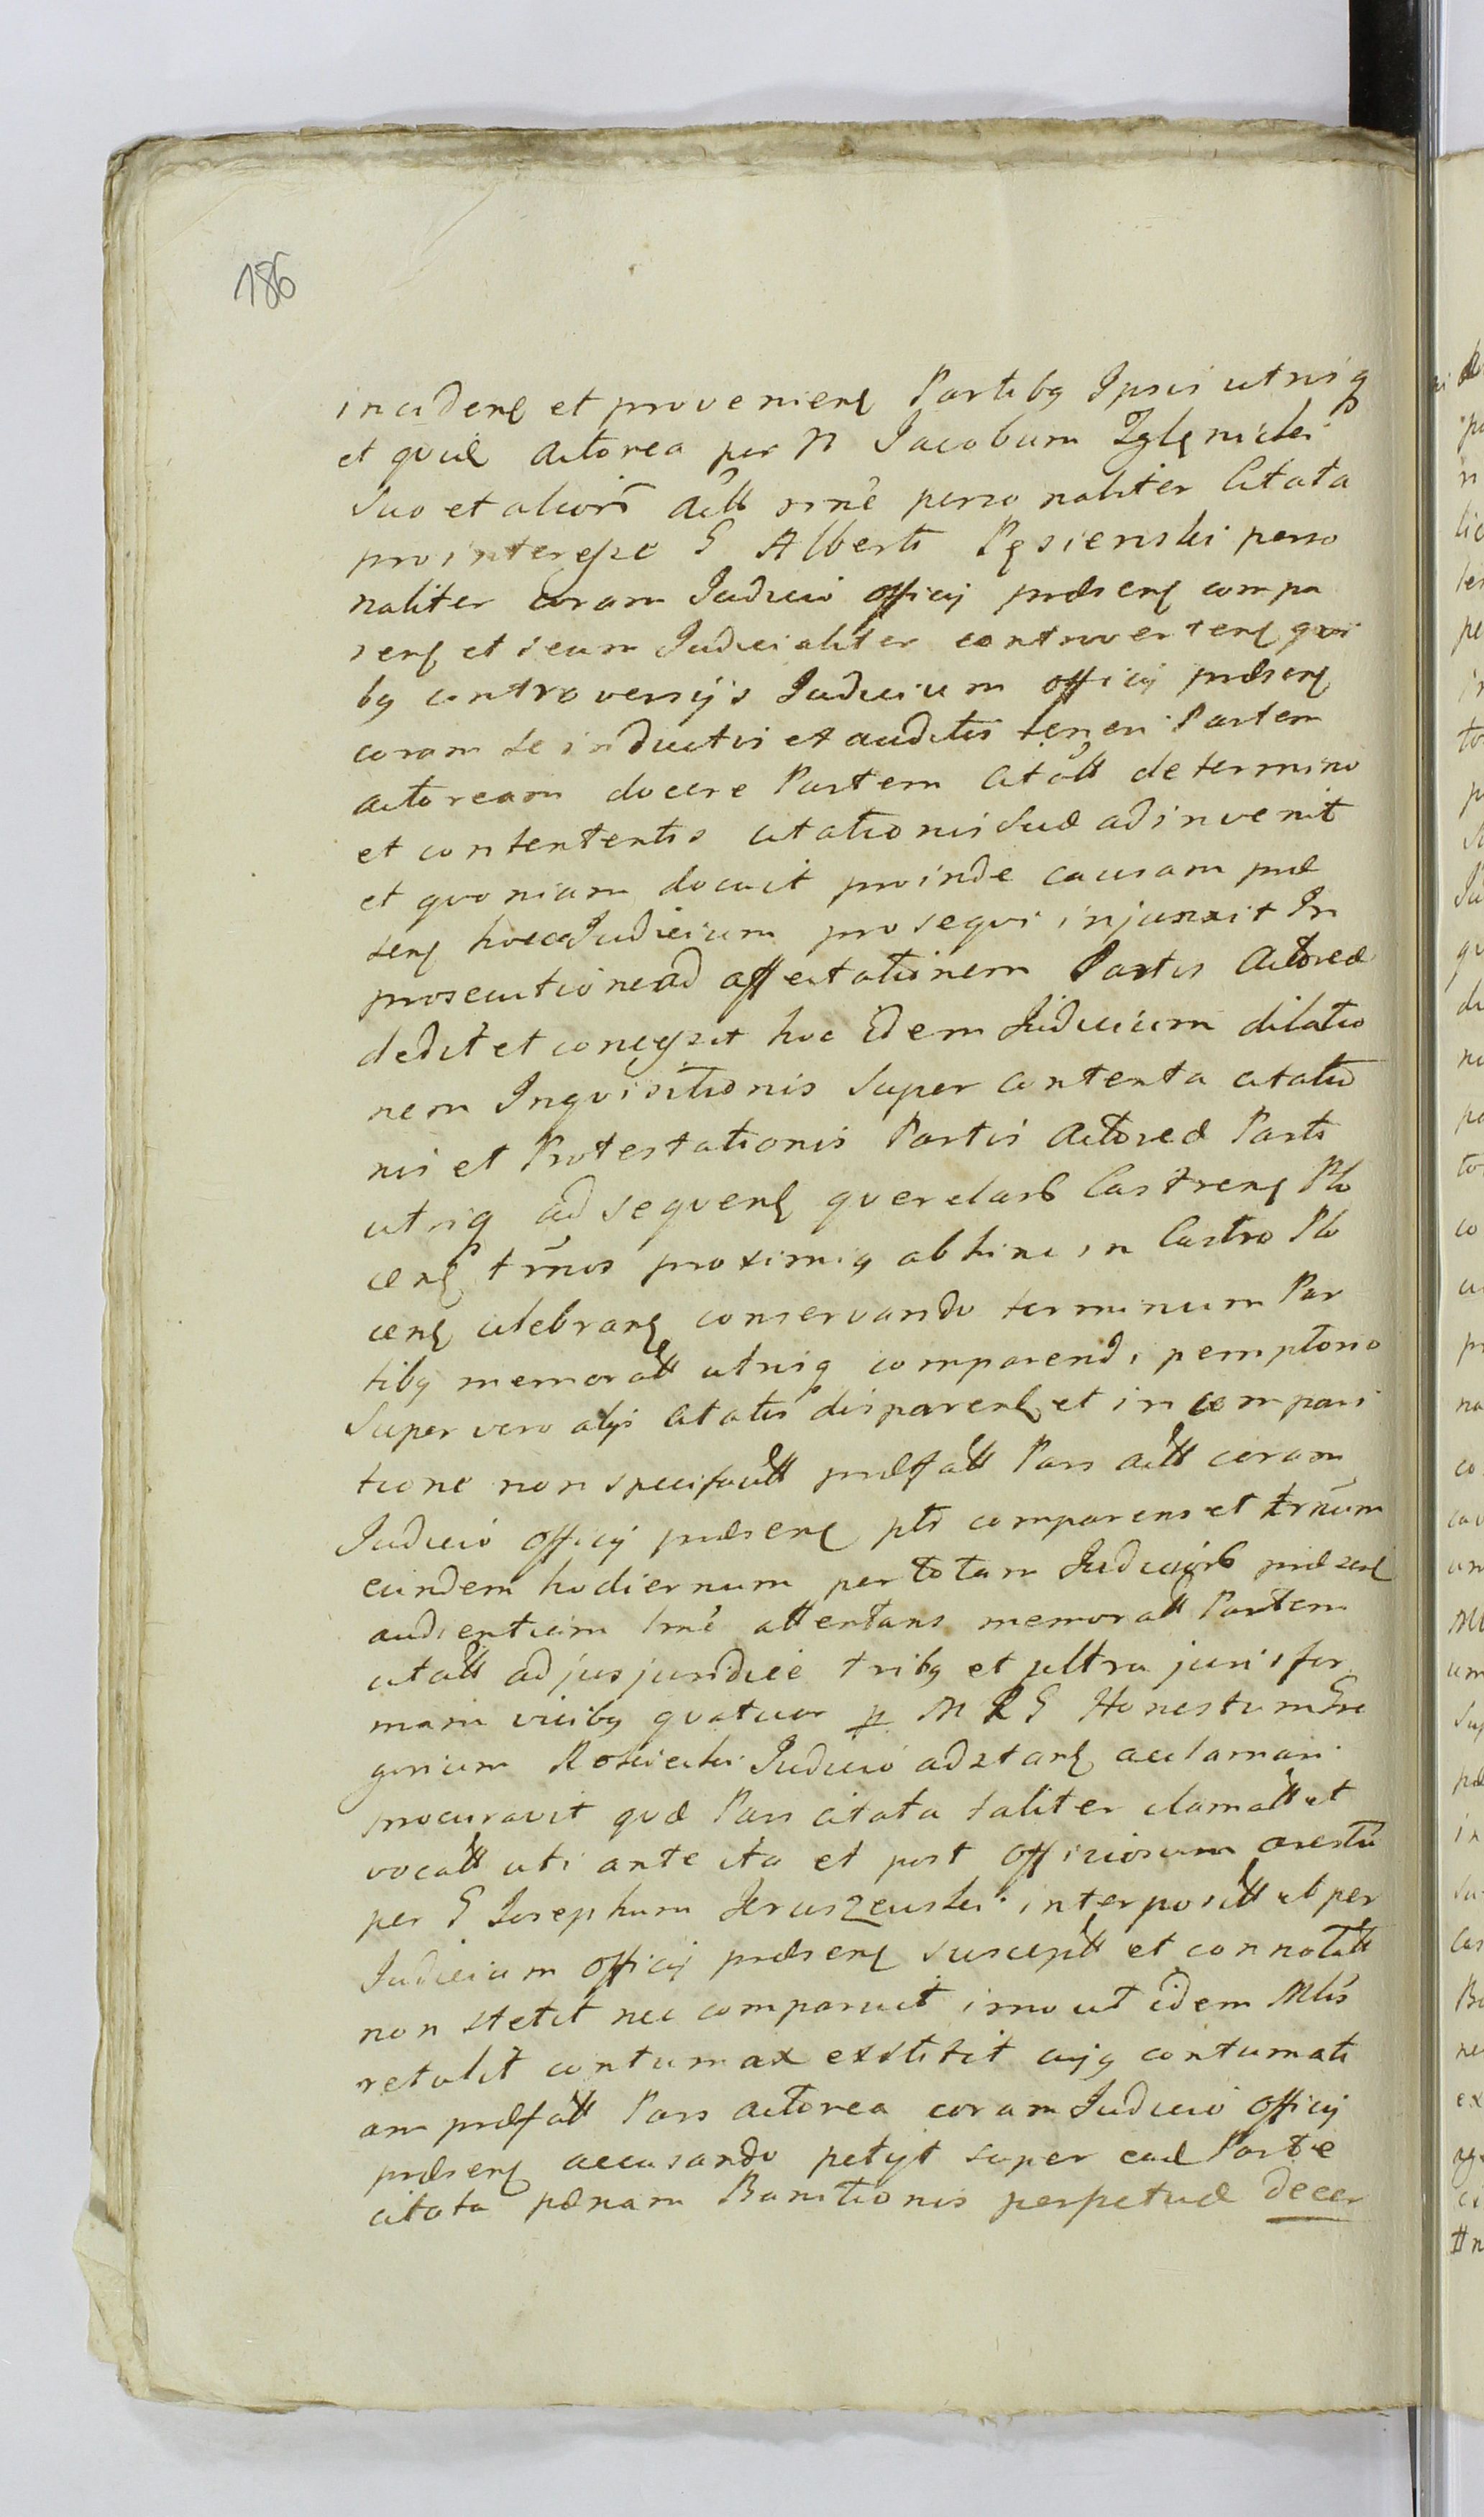 186
incidenꝭ et provenienꝭ Partibꝯ Ipsis utrisqꝫ
et quidꝭ Actorea per N Jacobum Zglęnicki
suo et alior̃ actt nrñe personaliter Citata
pro interesse G Alberti Pęsienski perso
naliter coram Judicio officij præsenꝭ compa
renꝭ et secum Judicialiter controvertenꝭ qvi
bꝯ controversijs Judicium officij præsenꝭ
coram se inductis et auditis teneri Partem
actoream docere Partem Citatt de termino
et contententis citationis suæ adinvenit
et qvoniam docuit proinde causam præ
senꝭ hocce Judicium proseqvi injunxit In
prosecutione ad affectationem Partis Actoreæ
dedit et concessit hoc idem Judicium dilatio
nem Inqvisitionis super contenta citatio
nis et Protestationis Partis Actoreæ Parti
utriqꝫ ad seqvenꝭ querelarꝭ Castrenꝭ Plo
cenꝭ trm̃os proximiꝯ abhinc in Castro Plo
cenꝭ celebranꝭ conservando terminum Par
tibꝯ memoratt utrisqꝫ comparendi pemptorio
Super vero alijs citatis disparenꝭ et in compari
tione non specificatt præfatt Pars actt coram
Judicio officij præsenꝭ pltr comparens et trm̃um
eundem hodiernum per totam Judiciorꝭ præsenꝭ
audientiam trm̃e attentans memoratt Partem
citatt ad jus juridice tribꝯ et ultra juris for
mam vicibꝯ qvatuor p M R G Honestum Gre
gorium Rościcki Judicio adstanꝭ acclamari
procuravit qvæ Pars citata taliter clamatt et
vocatt uti ante ita et post officiosum arestũ
per G Josephum Jeruszewski interpositt et per
Judicium officij præsenꝭ susceptt et connotatt
non stetit nec comparuit imo ut idem Mlis
retulit contumax exstitit cujꝯ contumati
am præfatt Pars actorea coram Judicio officij
præsenꝭ accusando petijt super eadꝭ Parte
citata pænam Banitionis perpetuæ decer